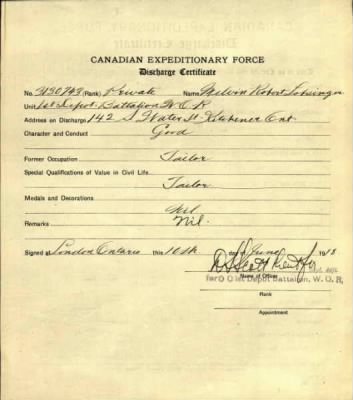 CANADIAN EXPEDITIONARY FORCE
Discharge Certificate
No. 3130743 (Rank) Private Name Melvin Robert
Unit 1st Depot Battalion W.O.R.
Address on Discharge 142 S. Water St Kitchener Ont.
Character and Conduct
Good
Former Occupation
Tailor
Special Qualifications of Value in Civil Life
Tailor
Medals and Decorations
Nil
Remarks
Nil.
Signed at London Ontario this 10th day June 1918
D Scott
Name of Officer
for O C 1st Depot Battalion, W. O. R.
Rank
Appointment